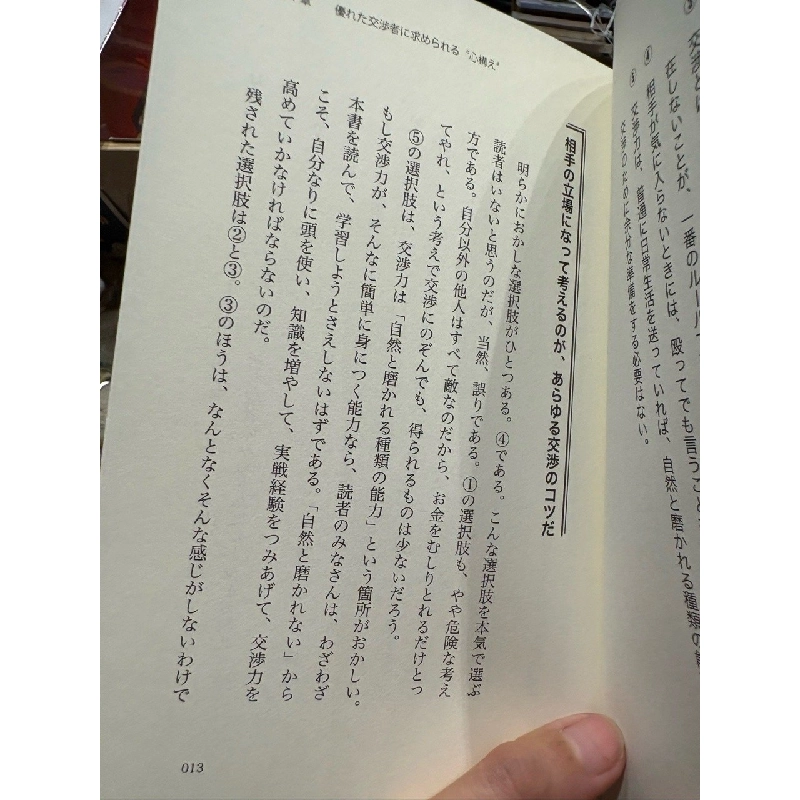 ③
交
在しないことが、一番のルール
④ 相手が気に入らないときには、殴ってでも言うこと
⑤ 交渉力は、普通に日常生活を送っていれば、自然と磨かれる種類の
交渉のために余分な準備をする必要はない。
章 優れた交渉者に求められる“心構え”
相手の立場になって考えるのが、あらゆる交渉のコツだ
明らかにおかしな選択肢がひとつある。④である。こんな選択肢を本気で選ぶ
読者はいないと思うのだが、当然、誤りである。①の選択肢も、やや危険な考え
方である。自分以外の他人はすべて敵なのだから、お金をむしりとれるだけとっ
てやれ、という考えで交渉にのぞんでも、得られるものは少ないだろう。
⑤の選択肢は、交渉力は「自然と磨かれる種類の能力」という箇所がおかしい。
もし交渉力が、そんなに簡単に身につく能力なら、読者のみなさんは、わざわざ
本書を読んで、学習しようとさえしないはずである。「自然と磨かれない」から
こそ、自分なりに頭を使い、知識を増やして、実戦経験をつみあげて、交渉力を
高めていかなければならないのだ。
残された選択肢は②と③。③のほうは、なんとなくそんな感じがしないわけで
013